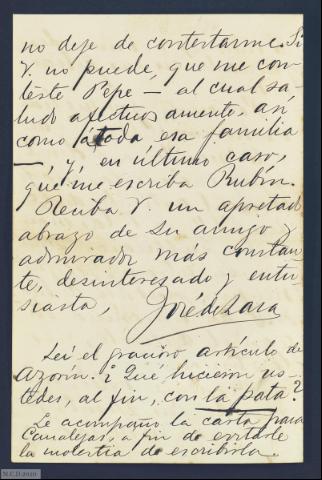 no deje de contestarme. Si
V. no puede, que me con-
teste Pepe — al cual sa-
ludo afectuosamente, así
como á toda esa familia
— y, en último caso,
que me escriba Rubín.
Reciba V. un apretado
abrazo de su amigo y
admirador más constan-
te, desinteresado y entu-
siasta,
José de Lara
Leí el gracioso artículo de
Azorín. ¿Qué hicieron us-
tedes, al fin, con la pata?
Le acompaño la carta para
Canalejas, a fin de evitarle
la molestia de escribirla.
N.C.D 2020